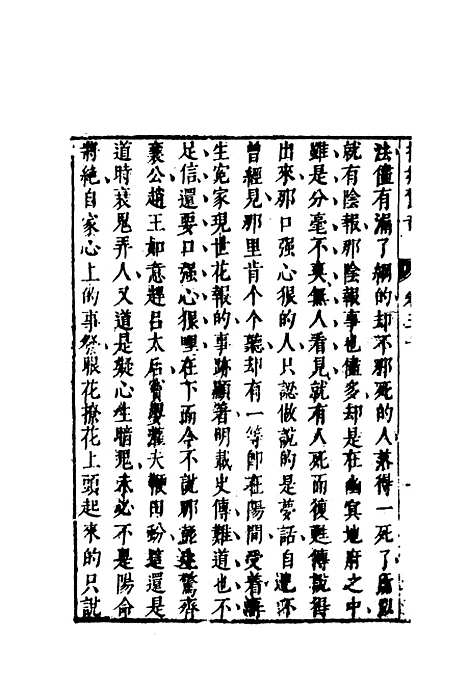 拍案驚奇 卷三十
法儘有漏了網的却不那死的人落得一死了所以
就有陰報那陰報事也儘多却是在幽冥地府之中
雖是分毫不爽無人看見就有人死而復甦傳說得
出來那口强心狠的人只認做說的是夢話自己不
曾經見那里肯个个聽却有一等卽在陽間受着再
生冤家現世花報的事跡顯著明載史傳難道也不
足信還要口强心狠哩在下而今不說那彭生驚齊
襄公趙王如意趕呂太后竇嬰灌夫鞭田蚡這還是
道時衰鬼弄人又道是疑心生暗鬼未必不是陽命
將絕自家心上的事發眼花撩花上頭起來的只說